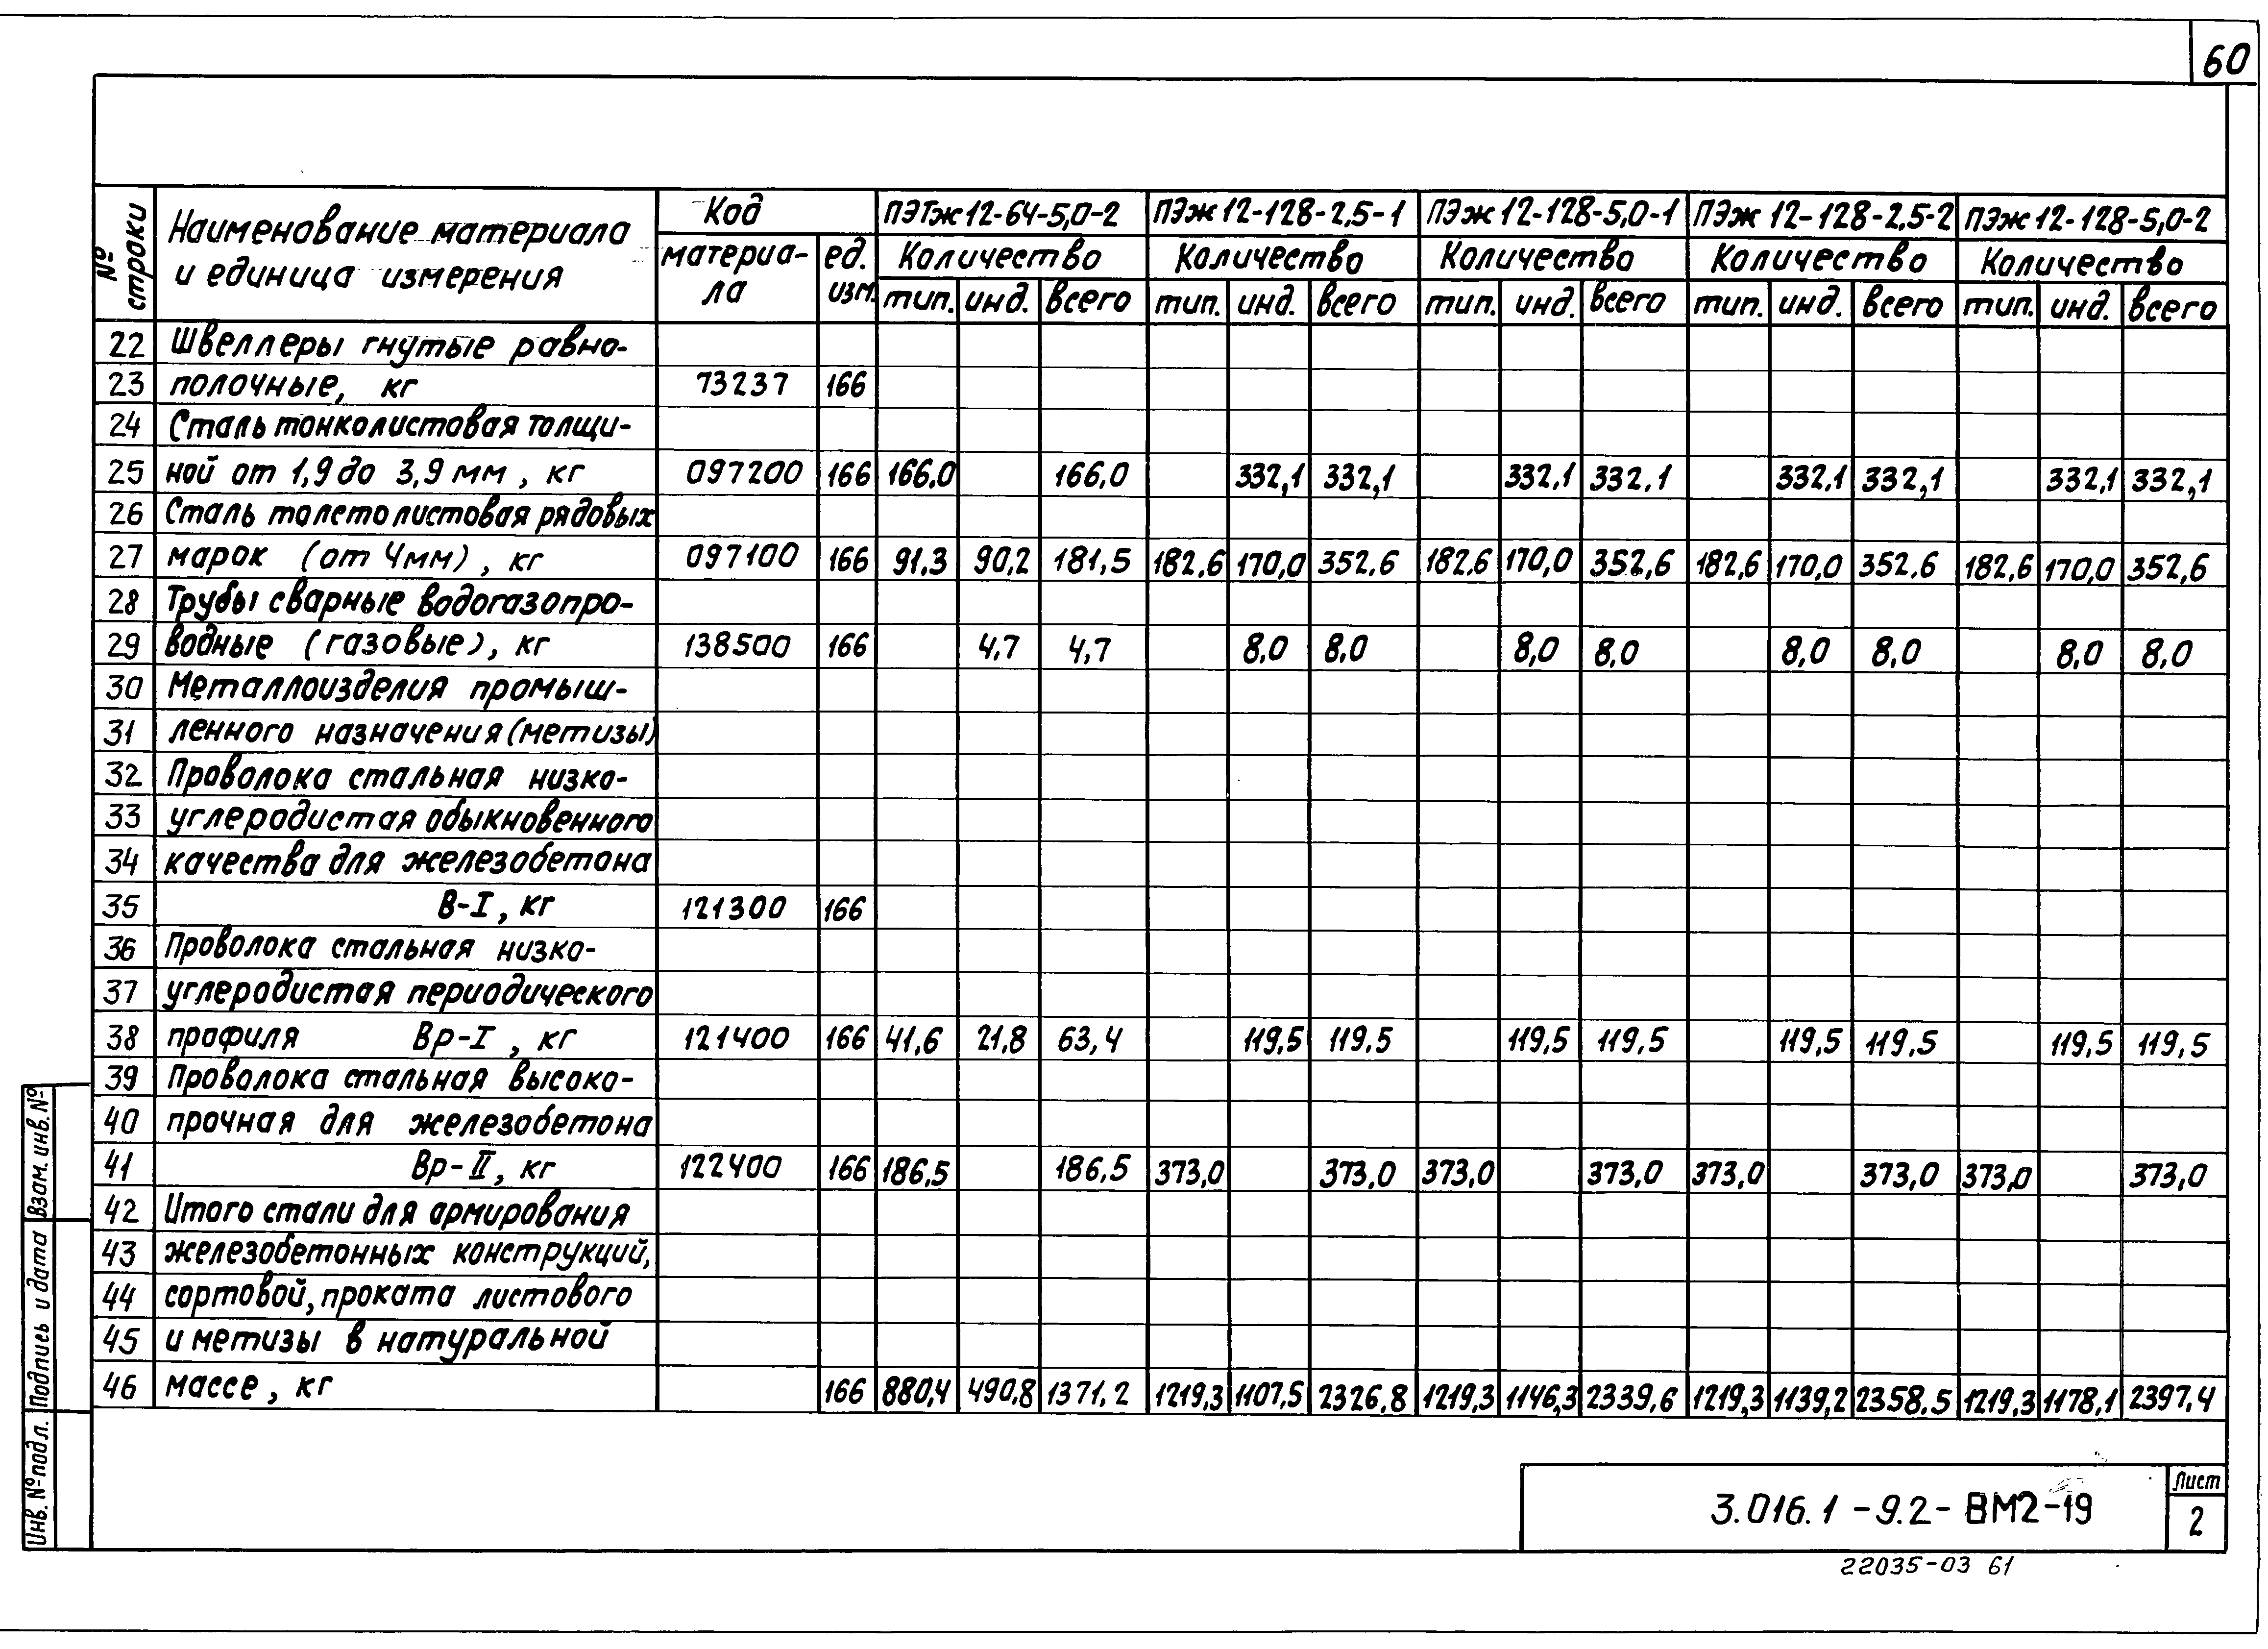 60
№ строки Наименование материала и единица измерения Код ПЭТж12-64-5,0-2 ПЭж12-128-2,5-1 ПЭж12-128-5,0-1 ПЭж12-128-2,5-2 ПЭж12-128-5,0-2
материа-ла ед. изм. Количество Количество Количество Количество Количество
тип. инд. всего тип. инд. всего тип. инд. всего тип. инд. всего тип. инд. всего
22 Швеллеры гнутые равно-
23 полочные, кг 73237 166
24 Сталь тонколистовая толщи-
25 ной от 1,9 до 3,9 мм, кг 097200 166 166,0 166,0 332,1 332,1 332,1 332,1 332,1 332,1 332,1 332,1
26 Сталь толстолистовая рядовых
27 марок (от 4мм), кг 097100 166 91,3 90,2 181,5 182,6 170,0 352,6 182,6 170,0 352,6 182,6 170,0 352,6 182,6 170,0 352,6
28 Трубы сварные водогазопро-
29 водные (газовые), кг 138500 166 4,7 4,7 8,0 8,0 8,0 8,0 8,0 8,0 8,0 8,0
30 Металлоизделия промыш-
31 ленного назначения (метизы)
32 Проволока стальная низко-
33 углеродистая обыкновенного
34 качества для железобетона
35 В-I, кг 121300 166
36 Проволока стальная низко-
37 углеродистая периодического
38 профиля Вр-I, кг 121400 166 41,6 21,8 63,4 119,5 119,5 119,5 119,5 119,5 119,5 119,5 119,5
39 Проволока стальная высоко-
40 прочная для железобетона
41 Вр-II, кг 122400 166 186,5 186,5 373,0 373,0 373,0 373,0 373,0 373,0 373,0 373,0
42 Итого стали для армирования
43 железобетонных конструкций,
44 сортовой, проката листового
45 и метизы в натуральной
46 массе, кг 166 880,4 490,8 1371,2 1219,3 1107,5 2326,8 1219,3 1146,3 2339,6 1219,3 1139,2 2358,5 1219,3 1178,1 2397,4
Инв. № подл. Подпись и дата Взам. инв. №
3.016.1-9.2-ВМ2-19
Лист
2
22035-03 61